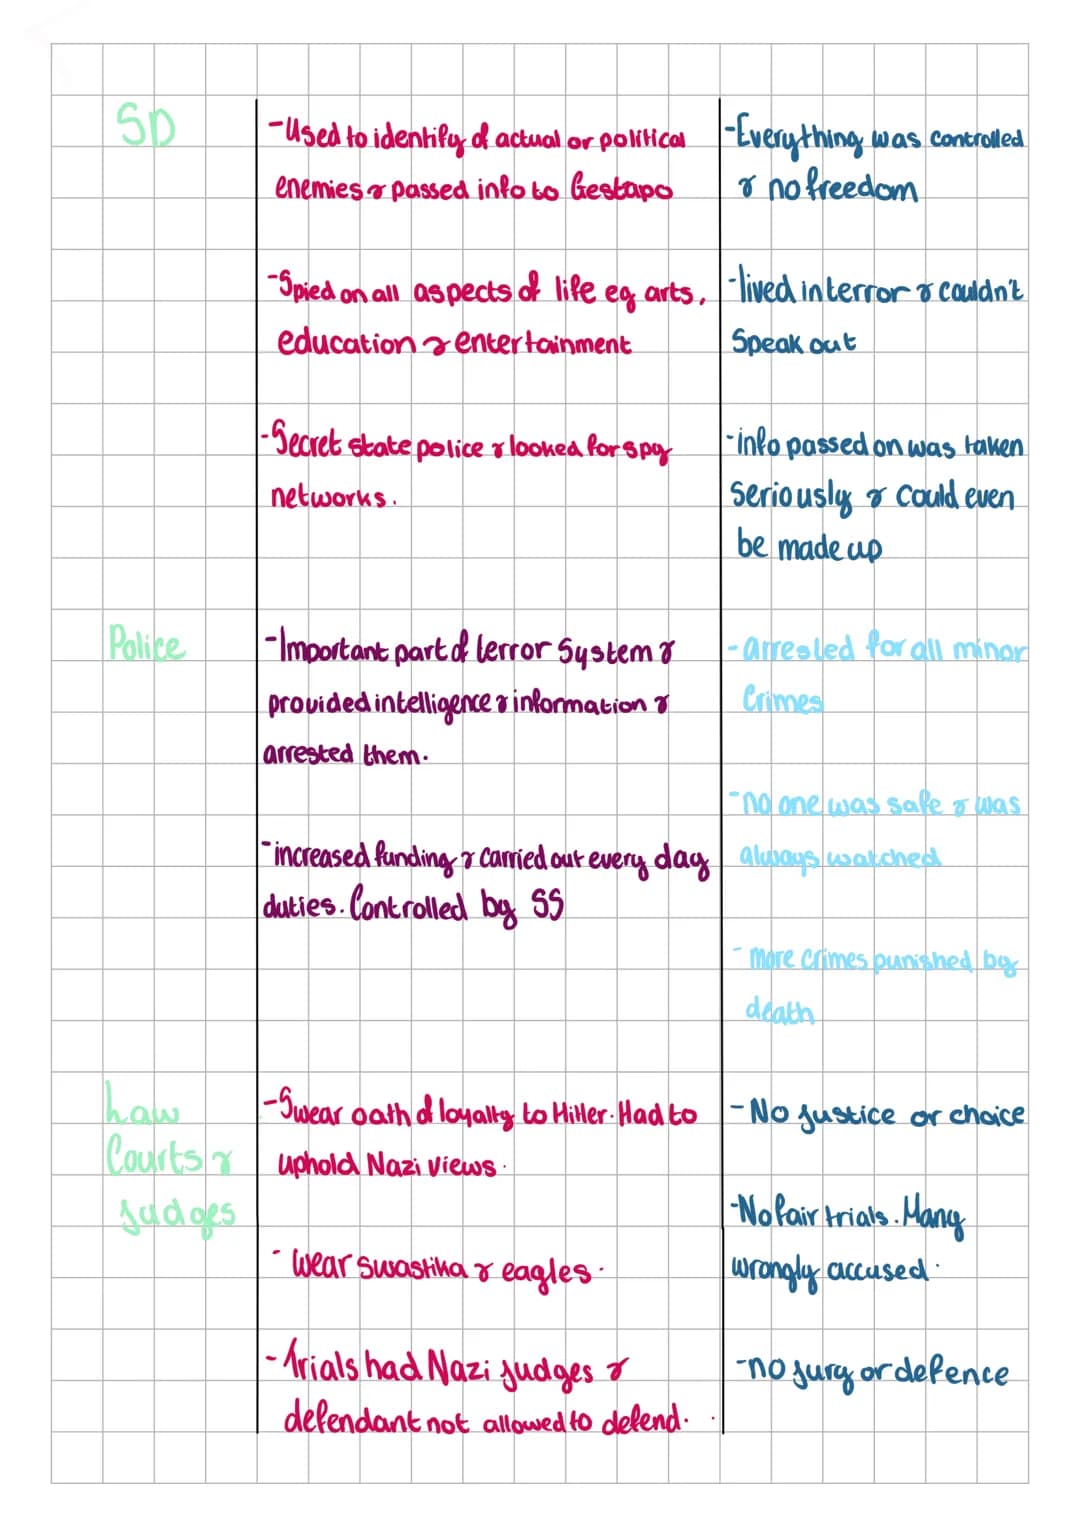 SD
-Used to identify of actual or political
enemies & passed info to Gestapo
-Spied on all aspects of life eg arts,
education & entertainment
-Secret state police & looked for spy
networks.
-Everything was controlled
& no freedom
-lived in terror & couldn't
Speak out
-info passed on was taken
seriously & could even
be made up
Police
-Important part of terror System &
provided intelligence & information &
arrested them.
-increased funding & carried out every day
duties. Controlled by SS
-arrested for all minor
Crimes
-no one was safe & was
always watched
-more crimes punished by
death
Law
Courts &
judges
-Swear oath of loyalty to Hitler. Had to
uphold Nazi views.
-wear swastika & eagles.
-Trials had Nazi judges &
defendant not allowed to defend.
-No justice or choice
-No fair trials. Many
wrongly accused.
-no jury or defence